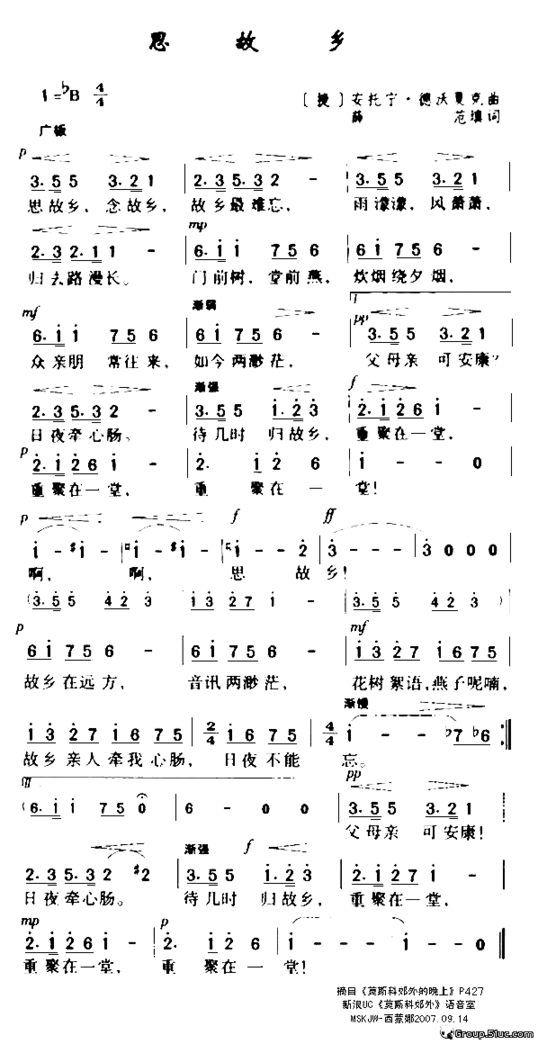 思 故 乡
1=♭B 4/4
〔捷〕安托宁·德沃夏克曲
薛 范填词
广板
p
3.55 3.21 | 2.325.32 2 - | 3.55 3.21
思故乡，念故乡， 故乡最难忘， 雨濛濛，风萧萧，
mp
2.32 2.11 - | 6.i i 7 5 6 | 6.i i 7 5 6
归去路漫长。 门前树，堂前燕， 炊烟绕夕烟，
mf 渐弱 1 pp
6.i i 7 5 6 | 6.i i 7 5 6 | 3.55 3.21
众亲朋 常往来， 如今两渺茫， 父母亲 可安康？
渐强 f
2.3 5.32 2 - | 3.55 i.2 3 | 2.i 2 6 i -
日夜牵心肠。 待几时 归故乡， 重聚在一堂，
p
2.i 2 6 i - | 2. i 2 6 | i - - 0
重聚在一堂， 重 聚在 一 堂！
p f ff
i - #i - | ♮i - #i - | i - - 2 | 3 - - - | 3 0 0 0
啊， 啊， 思 故 乡！
(3.55 4 2 3 | i 3 2 7 i - | 3.55 4 2 3)
p mf
6 i 7 5 6 - | 6 i 7 5 6 - | i 3 2 7 i 6 7 5
故乡在远方， 音讯两渺茫， 花树絮语，燕子呢喃，
渐慢
i 3 2 7 i 6 7 5 | 2/4 i 6 7 5 | 4/4 i - - ♭7 ♭6 :‖
故乡亲人牵我心肠， 日夜不能 忘。
pp
(6.i i 7 5 0 | 6 - 0 0 | 3.55 3.21
父母亲 可安康！
渐强 f
2.3 5.32 2 #2 | 3.55 i.2 3 | 2.i 2 7 i -
日夜牵心肠。 待几时 归故乡， 重聚在一堂，
mp p
2.i 2 6 i - | 2. i 2 6 | i - - - | i - - 0 ‖
重聚在一堂， 重 聚在 一 堂！
摘自《莫斯科郊外的晚上》P427
新浪UC《莫斯科郊外》语音室
MSKJW-西蒙娜2007.09.14
Group.51uc.com